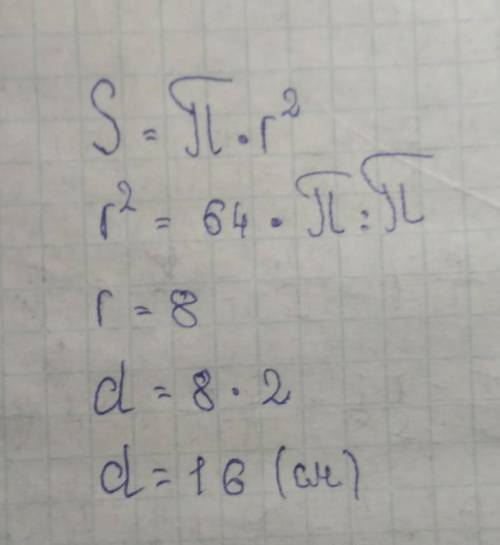 S = π · r²
r² = 64 · π : π
r = 8
d = 8 · 2
d = 16 (см)